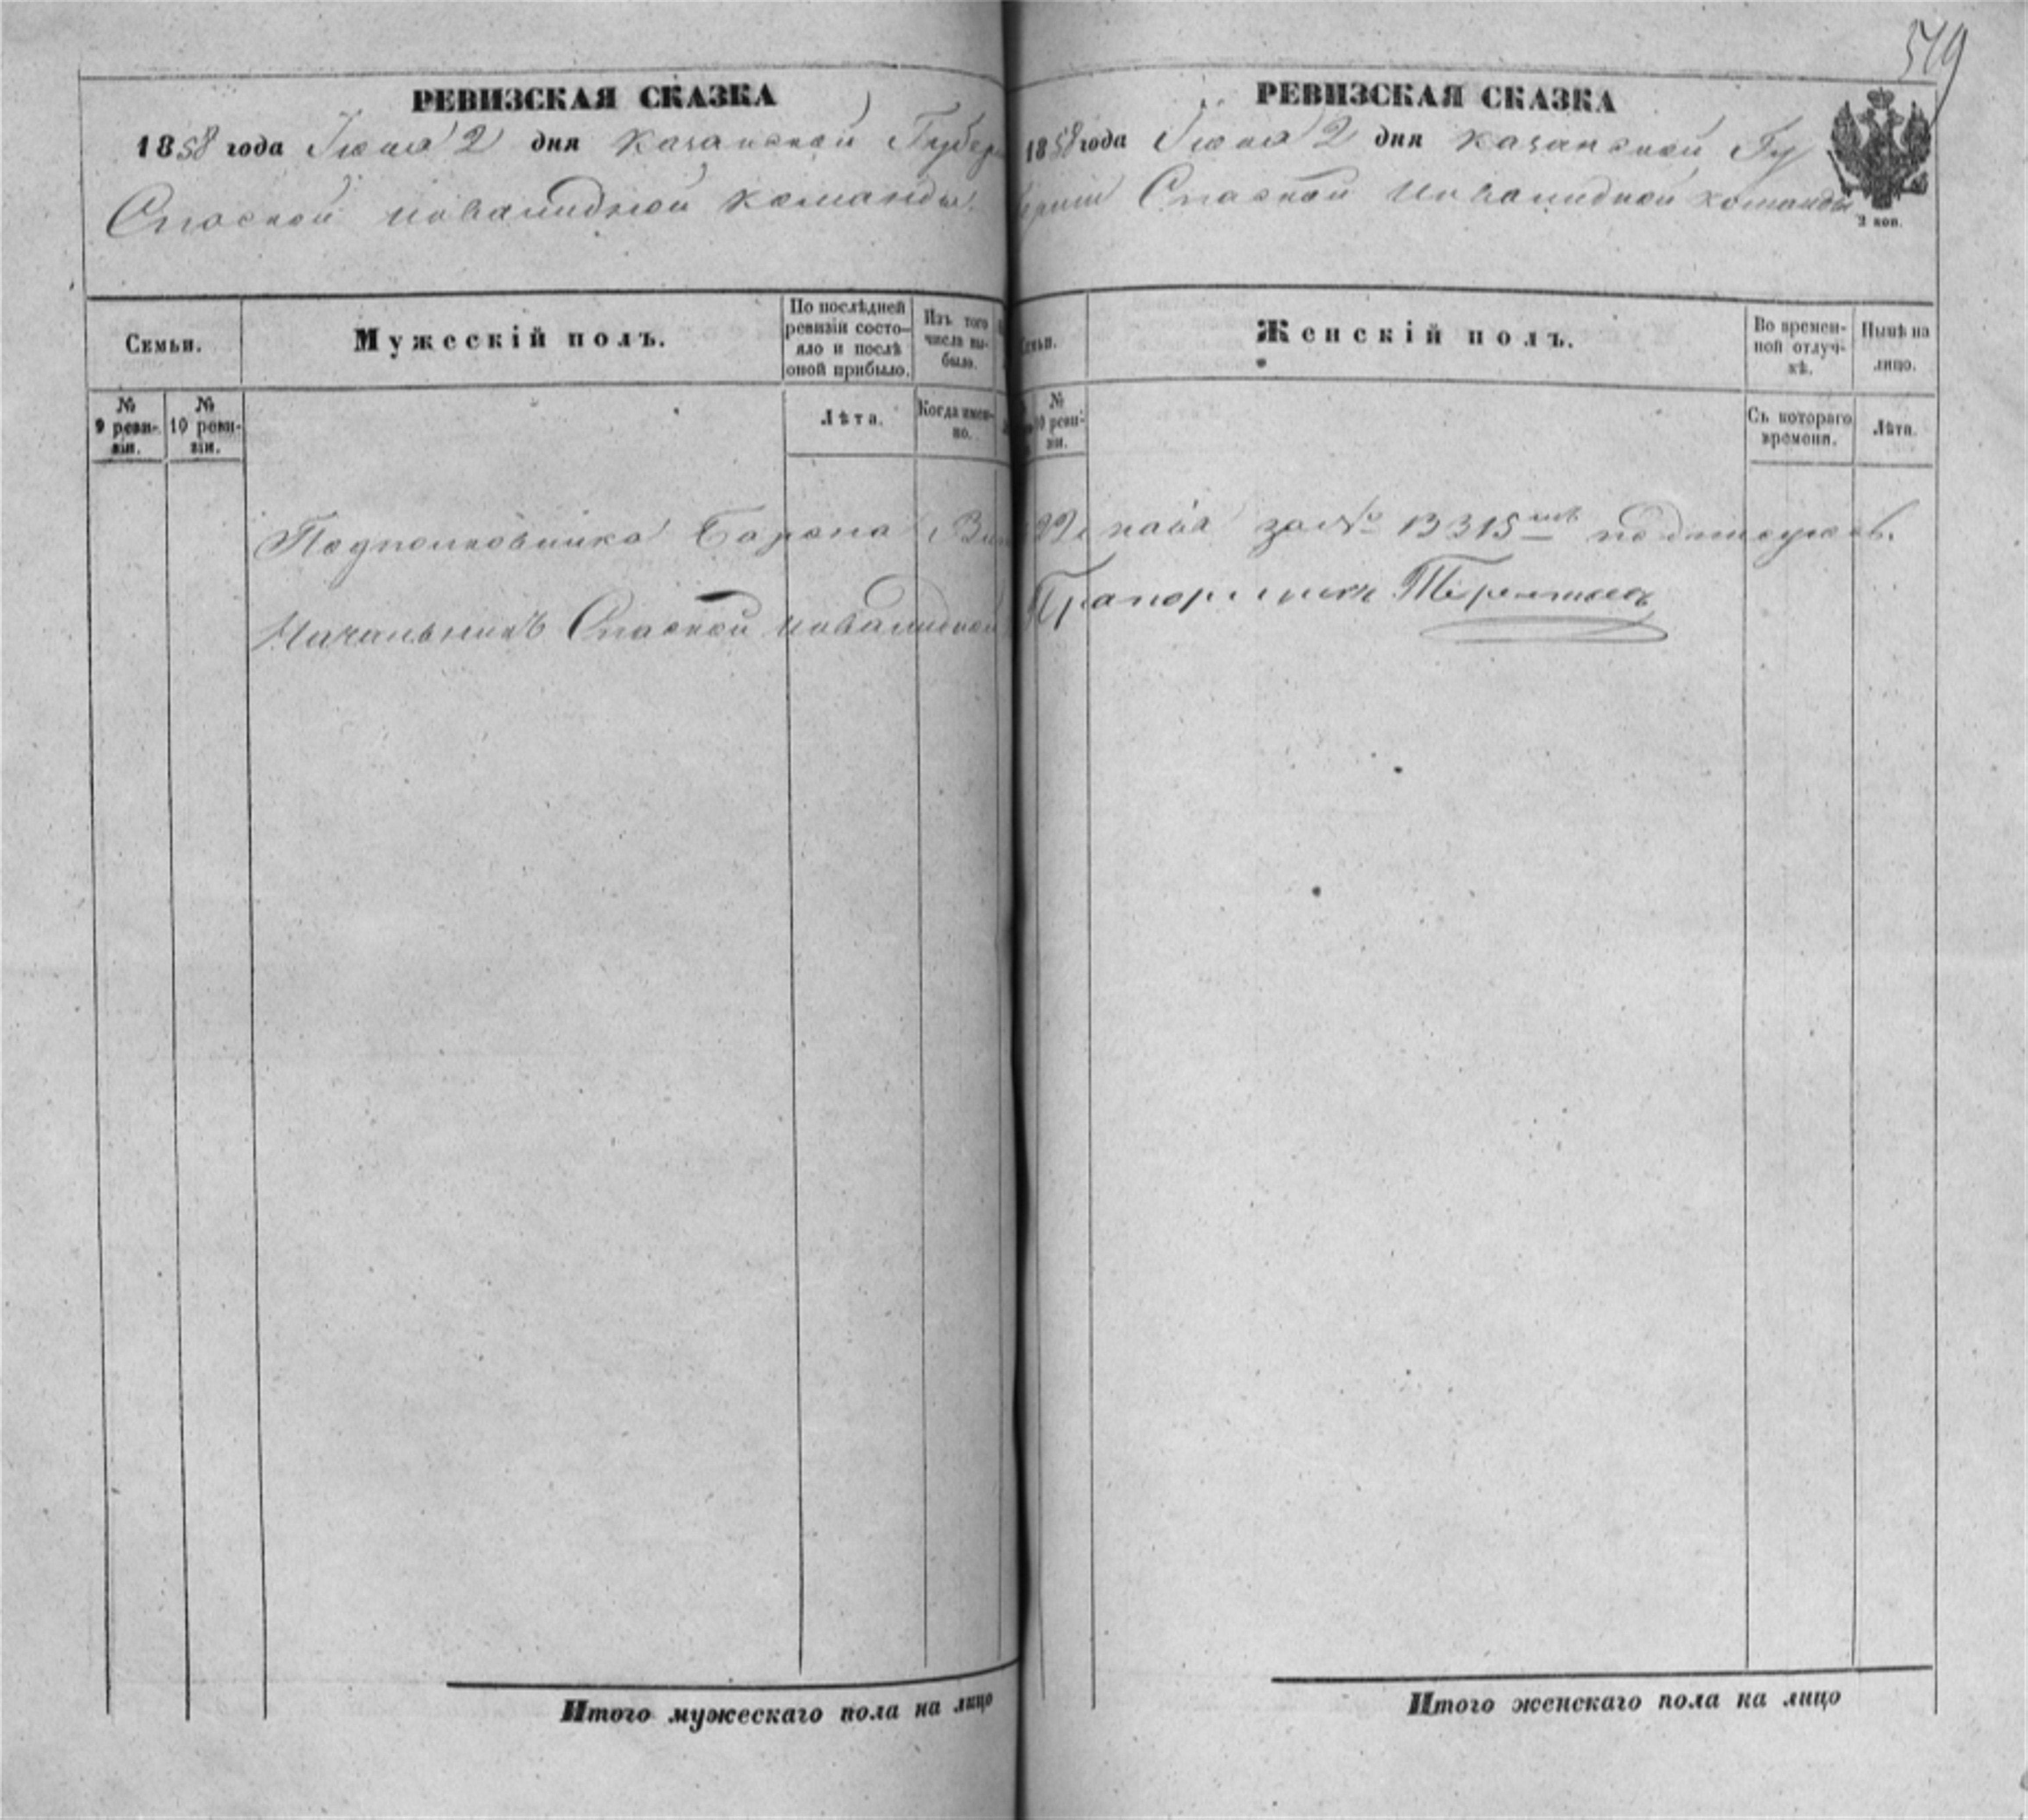 РЕВИЗСКАЯ СКАЗКА
1858 года Июня 2 дня Казанской Губер
Спаской инвалидной команды.
Семьи.
Мужескій полъ.
По послѣдней ревизіи состо-
яло и послѣ оной прибыло.
Изъ того числа вы-
было.
№ 9 реви-
зіи.
№ 10 реви-
зіи.
Лѣта.
Когда имен-
но.
Подполковника Барона
Начальникъ Спаской инвалидной
Итого мужескаго пола на лицо
519
РЕВИЗСКАЯ СКАЗКА
1858 года Июня 2 дня Казанской Гу
берніи Спаской инвалидной команды
2 коп.
Женскій полъ.
Во времен-
ной отлуч-
кѣ.
Нынѣ на лицо.
№ 10 реви-
зіи.
Съ котораго времени.
Лѣта.
за № 13315
Прапорщикъ
Итого женскаго пола на лицо